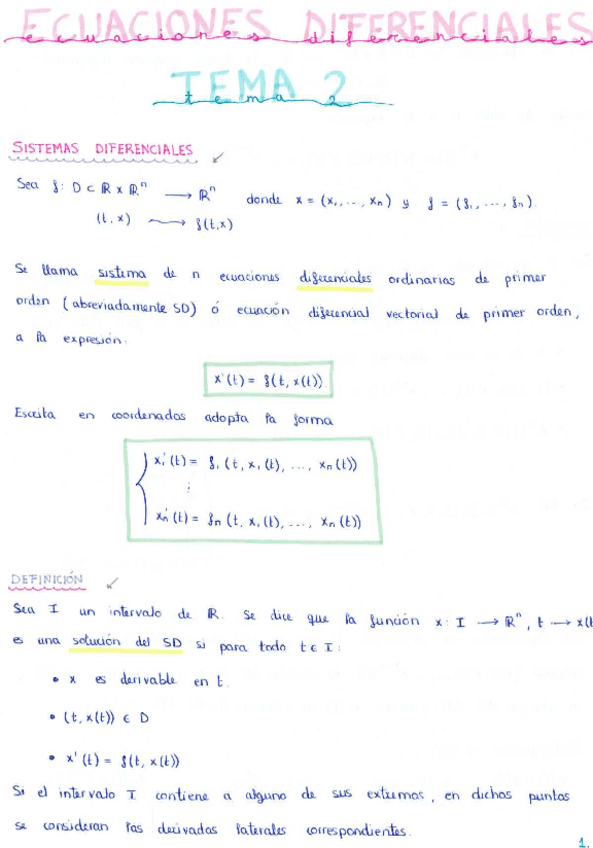 ECUACIONES DIFERENCIALES
ecuaciones diferenciales
TEMA 2
tema 2
SISTEMAS DIFERENCIALES
Sea f: D ⊂ ℝ x ℝⁿ ⟶ ℝⁿ donde x = (x₁, ..., xₙ) y f = (f₁, ..., fₙ).
(t, x) ⟿ f(t,x)
Se llama sistema de n ecuaciones diferenciales ordinarias de primer
orden (abreviadamente SD) ó ecuación diferencial vectorial de primer orden,
a la expresión:
x'(t) = f(t, x(t))
Escrita en coordenadas adopta la forma
x₁'(t) = f₁(t, x₁(t), ..., xₙ(t))
⋮
xₙ'(t) = fₙ(t, x₁(t), ..., xₙ(t))
DEFINICIÓN
Sea I un intervalo de ℝ. Se dice que la función x: I ⟶ ℝⁿ, t ⟶ x(t
es una solución del SD si para todo t ∈ I:
• x es derivable en t.
• (t, x(t)) ∈ D
• x'(t) = f(t, x(t))
Si el intervalo I contiene a alguno de sus extremos, en dichos puntos
se consideran las derivadas laterales correspondientes.
1.